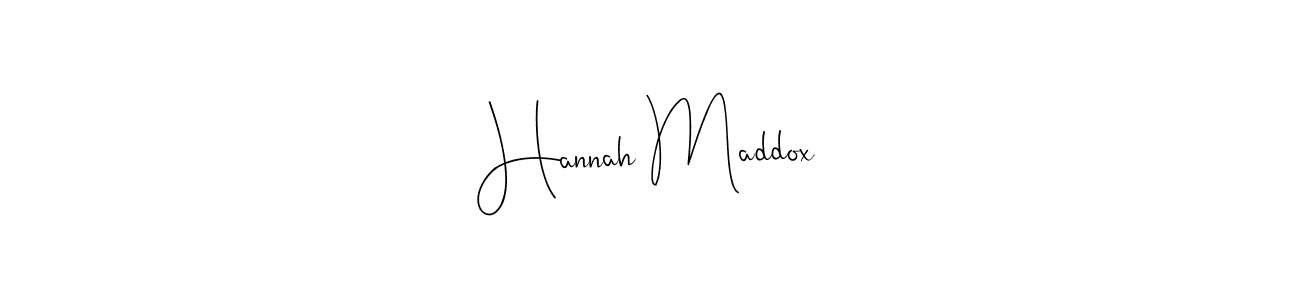 Hannah Maddox